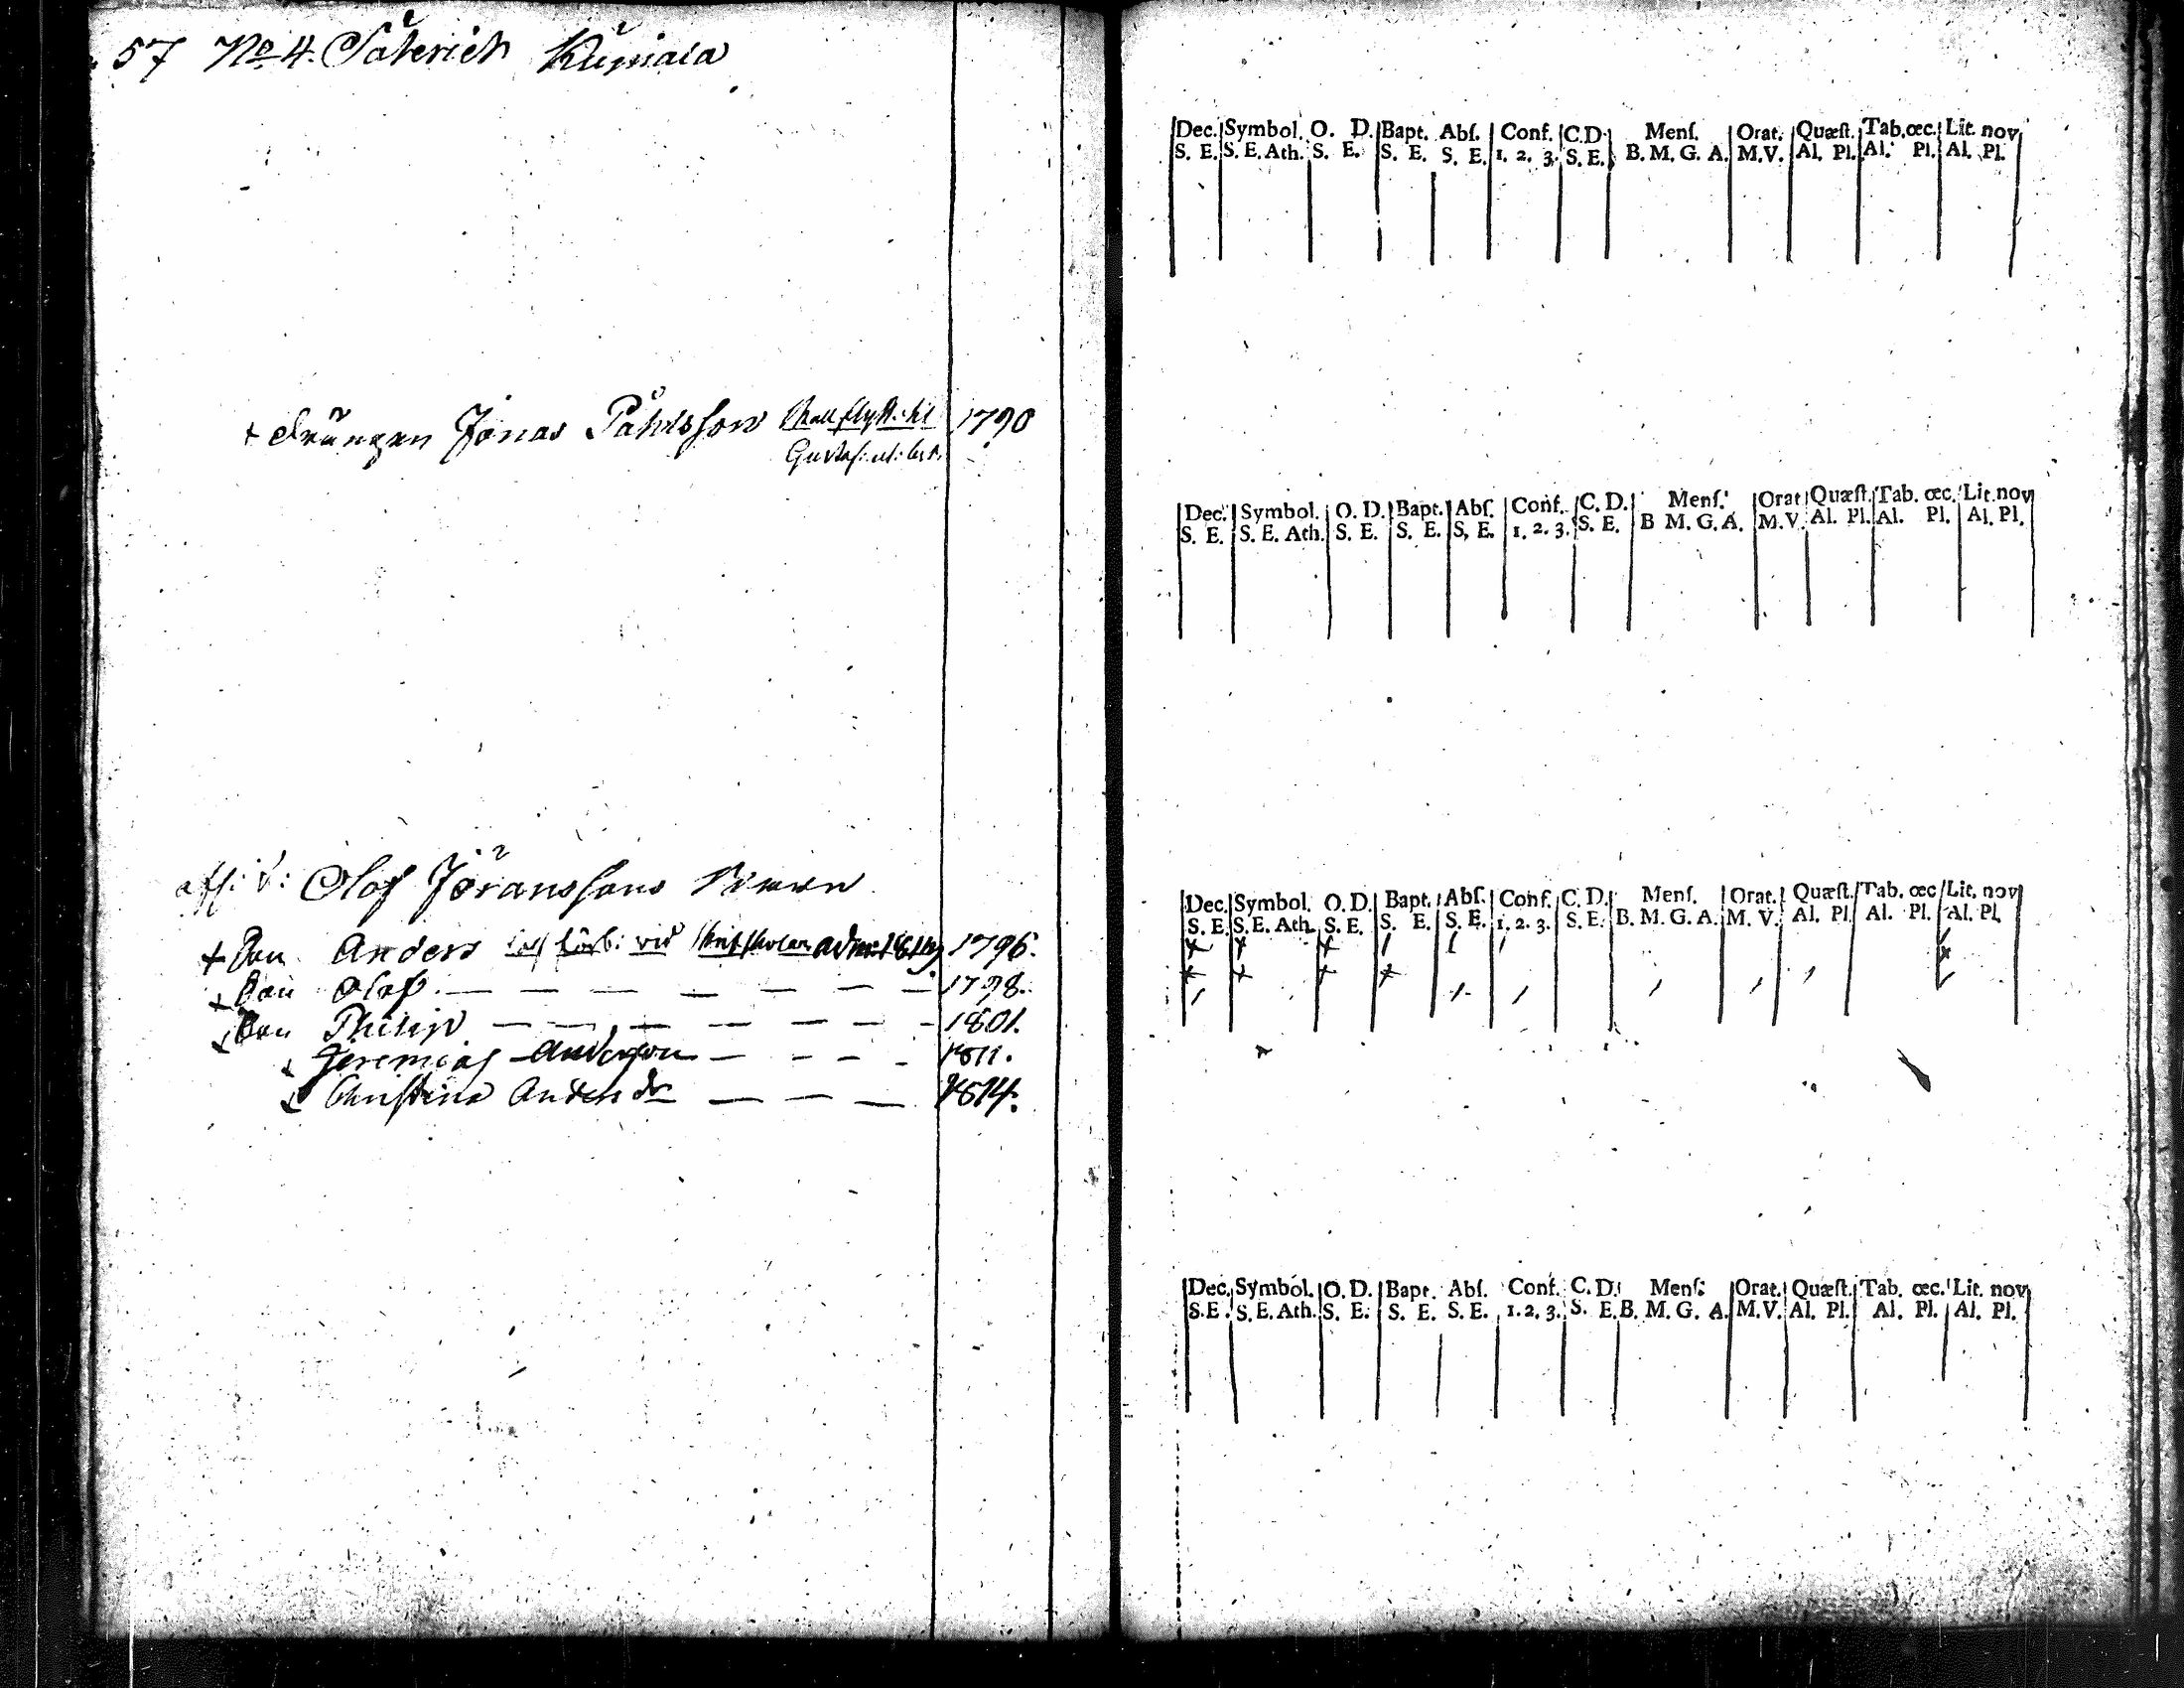 57 No 4. Säterich Kumiala
+ drängen Jonas Påhlsson skall flytt. til 1790
Gustaf:
Olof Jöranssons
+ Son Anders 1796.
+ Son Olof. — — — — — — — 1798.
+ Son Philip — — — — — — — 1801.
+ Jeremias Andersson — — — - 1811.
+ Christina Anders dr — — — 1814.
Dec. Symbol. O. D. Bapt. Abſ. Conf. C.D. Menſ. Orat. Quæſt. Tab. œc. Lit. nov
S. E. S. E. Ath. S. E. S. E. S. E. 1. 2. 3. S. E. B. M. G. A. M.V. Al. Pl. Al. Pl. Al. Pl.
Dec. Symbol. O. D. Bapt. Abſ. Conf. C. D. Menſ. Orat Quæſt. Tab. œc. Lit. nov
S. E. S. E. Ath. S. E. S. E. S. E. 1. 2. 3. S. E. B M. G. A. M.V. Al. Pl. Al. Pl. Al. Pl.
Dec. Symbol. O. D. Bapt. Abſ. Conf. C. D. Menſ. Orat. Quæſt. Tab. œc Lit. nov
S. E. S. E. Ath. S. E. S. E. S. E. 1. 2. 3. S. E. B. M. G. A. M. V. Al. Pl. Al. Pl. Al. Pl.
Dec. Symbol. O. D. Bapt. Abſ. Conf. C. D. Menſ. Orat. Quæſt. Tab. œc. Lit. nov
S. E. S. E. Ath. S. E. S. E. S. E. 1. 2. 3. S. E. B. M. G. A. M.V. Al. Pl. Al. Pl. Al. Pl.